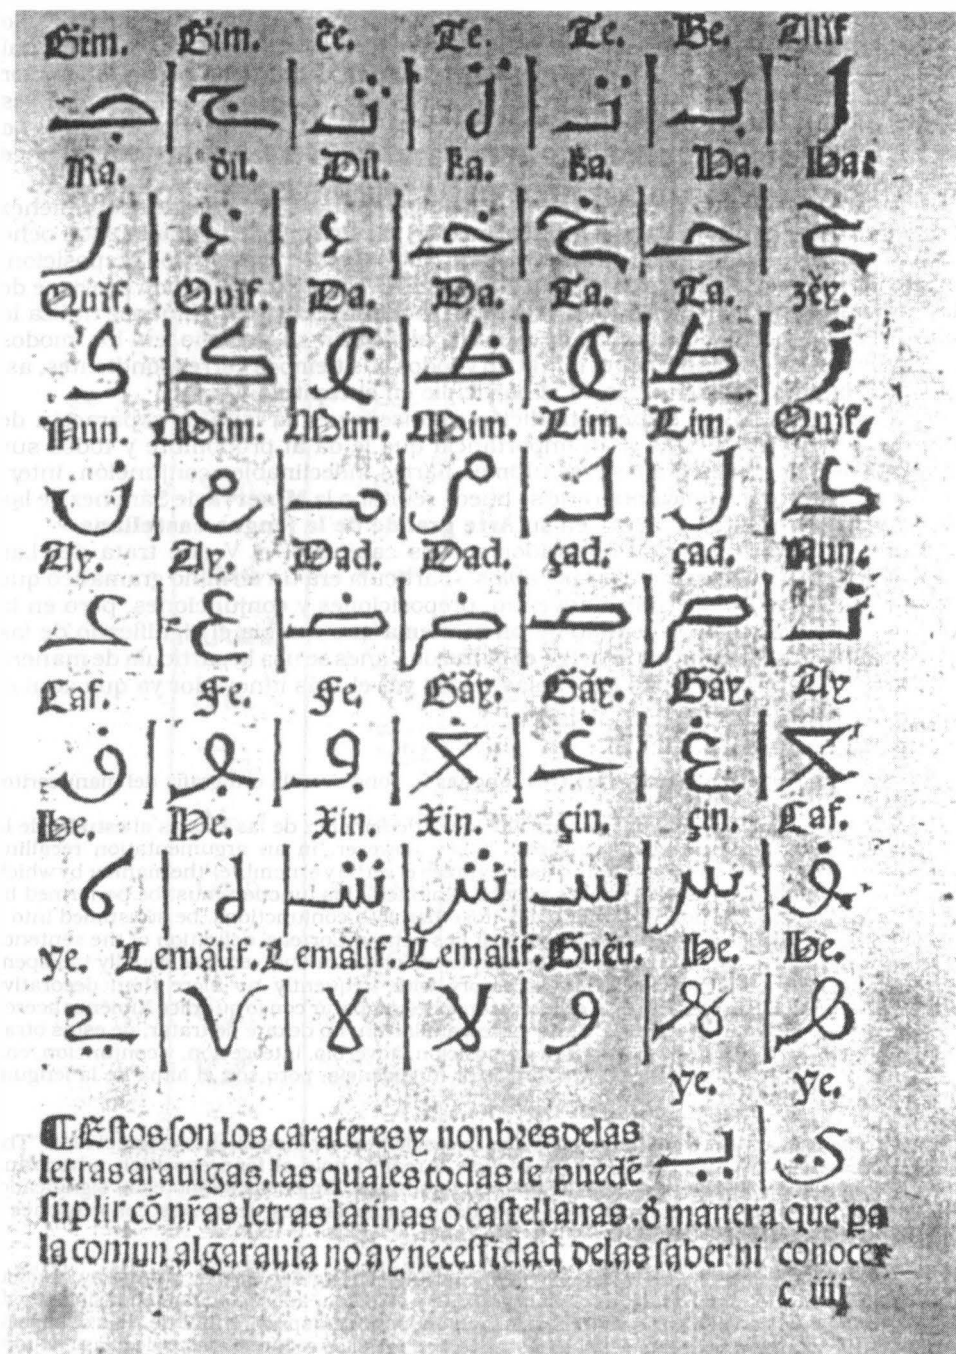 Gim. Gim. c̃e. Te. Te. Be. Alif
ا | بـ | تـ | ت | ثـ | ج | جـ
Ra. d̃il. Dil. ǩa. ǩa. Ha. Ha.
ح | حـ | خ | خـ | د | ذ | ر
Quif. Quif. Da. Da. Ta. Ta. zěy.
ز | ط | ط | ظ | ظ | ك | ك
Nun. Mim. Mim. Mim. Lim. Lim. Quif.
ك | ل | لـ | م | مـ | م | ن
Ay. Ay. Dad. Dad. çad. çad. Nun.
نـ | ص | صـ | ض | ضـ | ع | عـ
Caf. Fe. Fe. Gãy. Gãy. Gãy. Ay
ع | غ | غـ | غ | ف | ڢ | ڧ
He. He. Xin. Xin. çin. çin. Caf.
ڧ | س | سـ | ش | شـ | ه | ه
ye. Lemãlif. Lemãlif. Lemãlif. Guěu. He. He.
ه | ه | و | لا | لا | لا | يـ
ye. ye.
ي | يـ
¶ Estos son los carateres y nonbres delas
letras arauigas, las quales todas se puedẽ
suplir cõ nr̃as letras latinas o castellanas. d̃ manera que pa
la comun algarauia no ay necessidad delas saber ni conocer
c iiij